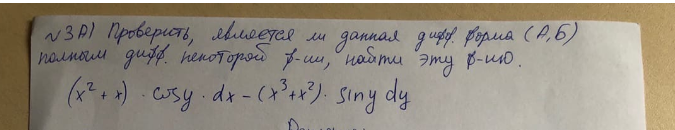 №3А) Проверить, является ли данная дифф. форма (А,Б)
полным дифф. некоторой ф-ии, найти эту ф-ию.
(x² + x) · cosy · dx - (x³+x²) · siny dy